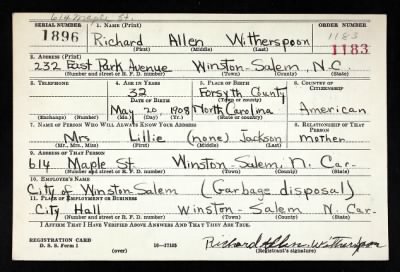 614 Maple St.
SERIAL NUMBER 1. NAME (Print) ORDER NUMBER
1896 Richard Allen Witherspoon 1183
(First) (Middle) (Last) 1183
2. ADDRESS (Print)
232 East Park Avenue Winston-Salem, N.C.
(Number and street or R. F. D. number) (Town) (County) (State)
3. TELEPHONE 4. AGE IN YEARS 5. PLACE OF BIRTH 6. COUNTRY OF CITIZENSHIP
32 Forsyth County
DATE OF BIRTH (Town or county)
May 20 1908 North Carolina American
(Exchange) (Number) (Mo.) (Day) (Yr.) (State or country)
7. NAME OF PERSON WHO WILL ALWAYS KNOW YOUR ADDRESS 8. RELATIONSHIP OF THAT PERSON
Mrs. Lillie (none) Jackson mother
(Mr., Mrs., Miss) (First) (Middle) (Last)
9. ADDRESS OF THAT PERSON
614 Maple St. Winston Salem, N. Car-
(Number and street or R. F. D. number) (Town) (County) (State)
10. EMPLOYER'S NAME
City of Winston-Salem (Garbage disposal)
11. PLACE OF EMPLOYMENT OR BUSINESS
City Hall Winston-Salem N. Car-
(Number and street or R. F. D. number) (Town) (County) (State)
I AFFIRM THAT I HAVE VERIFIED ABOVE ANSWERS AND THAT THEY ARE TRUE.
REGISTRATION CARD Richard Allen Witherspoon
D. S. S. Form 1 (over) 16-17105 (Registrant's signature)